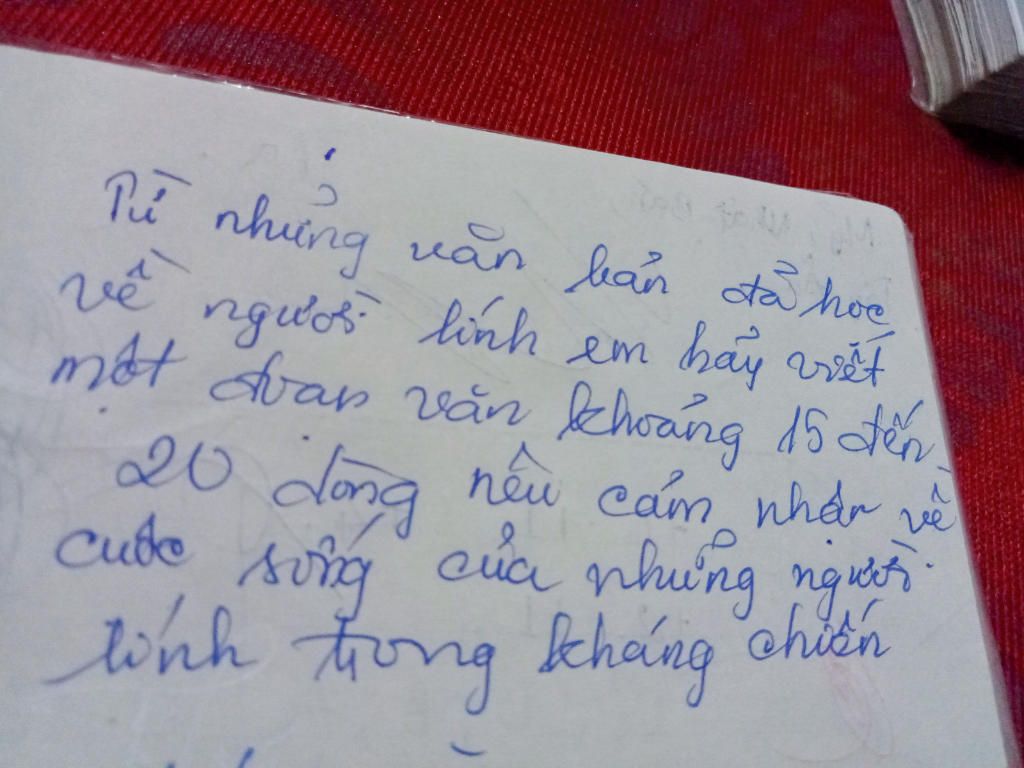 Từ nhửng văn bản đả học
về người lính em hảy viết
một đoạn văn khoảng 15 đến
20 dòng nêu cảm nhận về
cuộc sống của nhửng người
lính trong kháng chiến